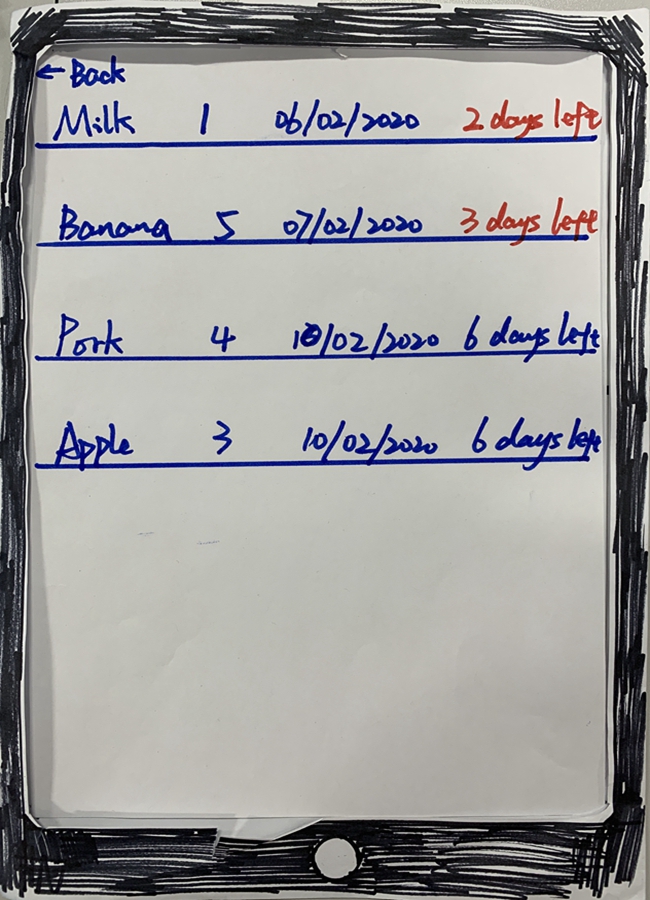 ← Back
Milk 1 06/02/2020 2 days left
Banana 5 07/02/2020 3 days left
Pork 4 10/02/2020 6 days left
Apple 3 10/02/2020 6 days left